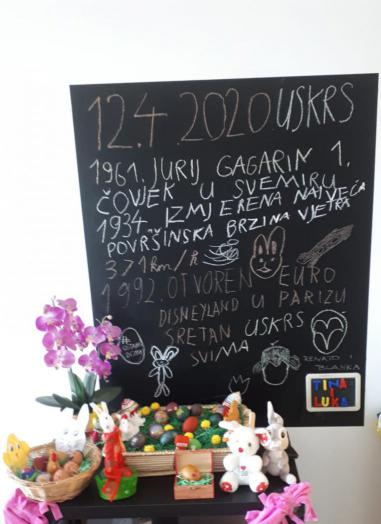 12.4.2020 USKRS
1961. JURIJ GAGARIN 1.
ČOVJEK U SVEMIRU
1934. IZMJERENA NAJVEĆA
POVRŠINSKA BRZINA VJETRA
371 km/h
1992. OTVOREN EURO
DISNEYLAND U PARIZU
SRETAN USKRS
SVIMA
RENATO I
BLANKA
TINA
LUKA